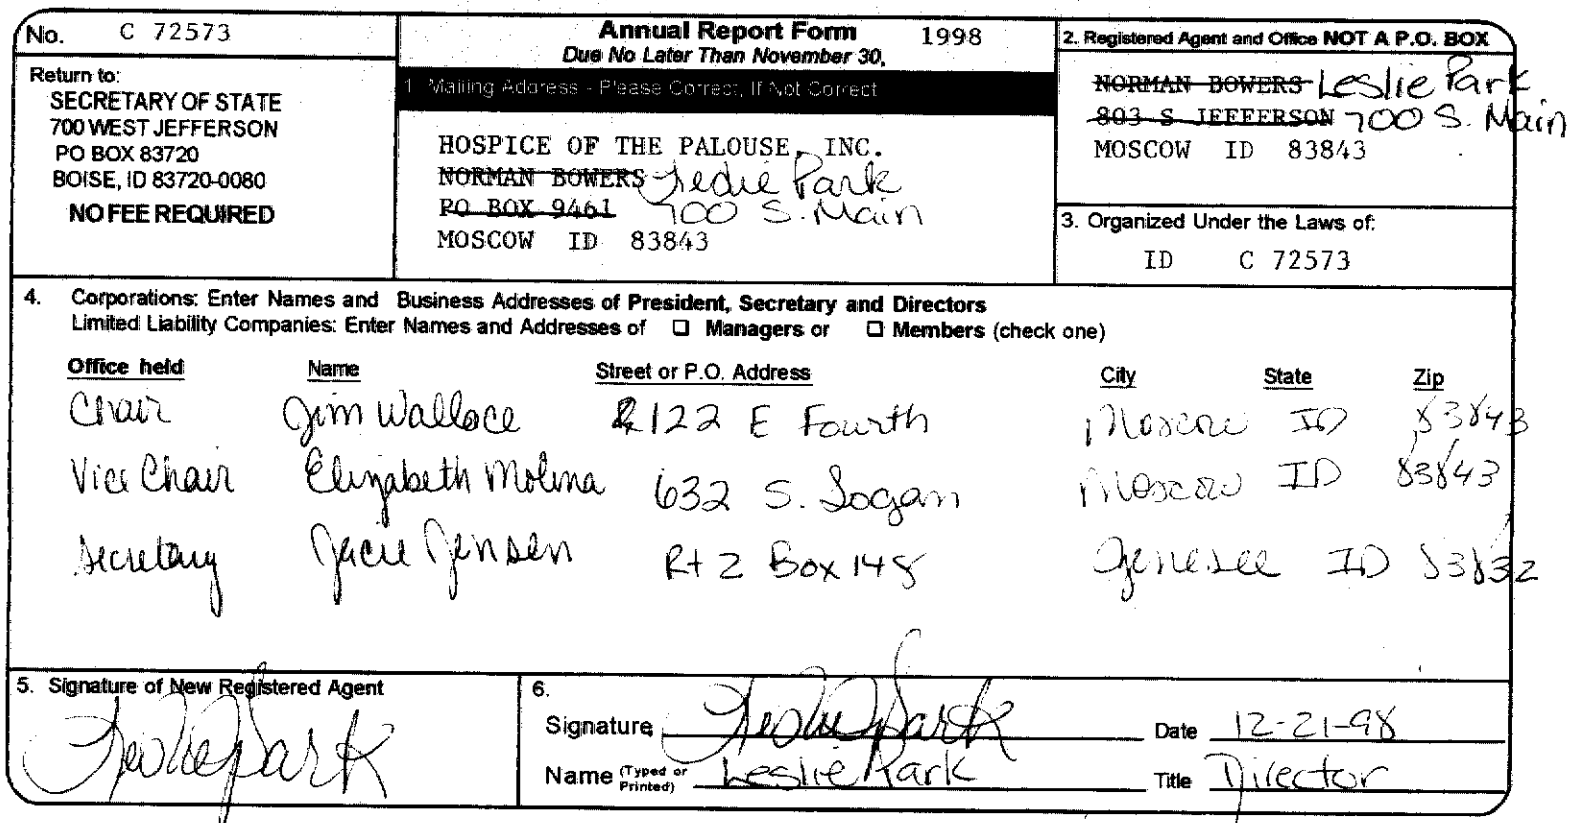 No. C 72573
Return to:
SECRETARY OF STATE
700 WEST JEFFERSON
PO BOX 83720
BOISE, ID 83720-0080
NO FEE REQUIRED
Annual Report Form 1998
Due No Later Than November 30,
1. Mailing Address - Please Correct, If Not Correct
HOSPICE OF THE PALOUSE, INC.
NORMAN BOWERS Leslie Park
PO BOX 9461 700 S. Main
MOSCOW ID 83843
2. Registered Agent and Office NOT A P.O. BOX
NORMAN BOWERS Leslie Park
803 S JEFFERSON 700 S. Main
MOSCOW ID 83843
3. Organized Under the Laws of:
ID C 72573
4. Corporations: Enter Names and Business Addresses of President, Secretary and Directors
Limited Liability Companies: Enter Names and Addresses of ☐ Managers or ☐ Members (check one)
Office held Name Street or P.O. Address City State Zip
Chair Jim Wallace 122 E Fourth Moscow ID 83843
Vice Chair Elizabeth Molina 632 S. Logan Moscow ID 83843
Secretary Jacie Jensen Rt 2 Box 148 Genesee ID 83832
5. Signature of New Registered Agent
Leslie J Park
6.
Signature Leslie J Park Date 12-21-98
Name (Typed or Printed) Leslie Park Title Director